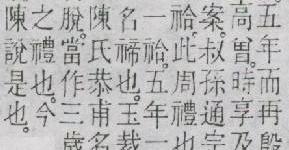 五年而再殷
高曾。時享及
案。叔孫通宗
祫。此周禮也
一祫。五年一
名禘也。玉裁
陳氏恭甫名
脫。當作三歲
之禮也。今
陳說是也。